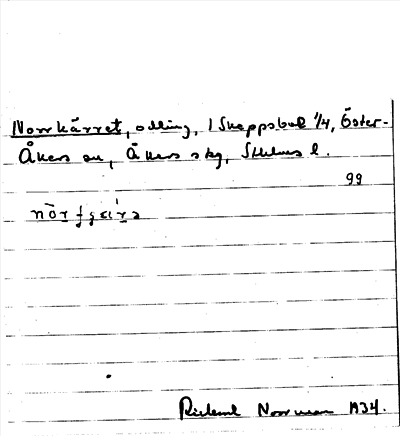 Norrkärret, odling, 1 Skeppsbol 1/4, Öster-
Åkers sn, Åkers skg, Sthlms l.
99
Rickard Norrman 1934.